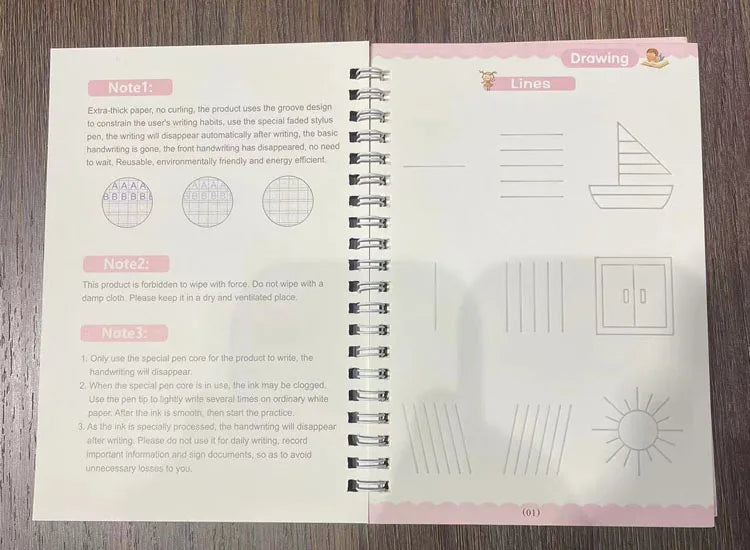 Note1:
Extra-thick paper, no curling, the product uses the groove design
to constrain the user's writing habits, use the special faded stylus
pen, the writing will disappear automatically after writing, the basic
handwriting is gone, the front handwriting has disappeared, no need
to wait, Reusable, environmentally friendly and energy efficient.
A A A A
B B B B B
A A A A
B B B B B
Note2:
This product is forbidden to wipe with force. Do not wipe with a
damp cloth. Please keep it in a dry and ventilated place.
Note3:
1. Only use the special pen core for the product to write, the
handwriting will disappear.
2. When the special pen core is in use, the ink may be clogged.
Use the pen tip to lightly write several times on ordinary white
paper. After the ink is smooth, then start the practice.
3. As the ink is specially processed, the handwriting will disappear
after writing. Please do not use it for daily writing, record
important information and sign documents, so as to avoid
unnecessary losses to you.
Drawing
Lines
(01)